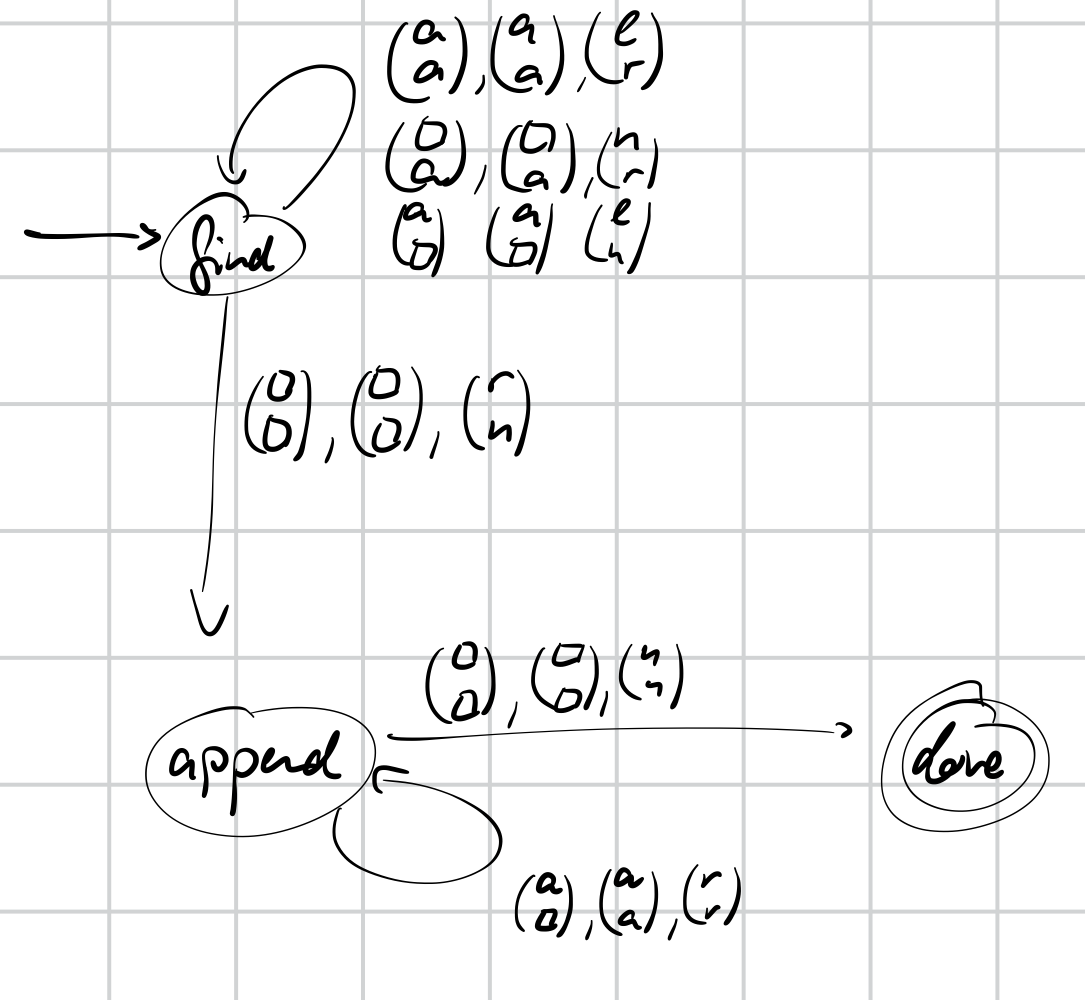 (a a), (a a), (l r)
(□ a), (□ a), (n r)
(a □) (a □) (l n)
find
(□ □), (□ □), (r n)
(□ □), (□ □), (n n)
append
done
(a □), (a a), (r r)